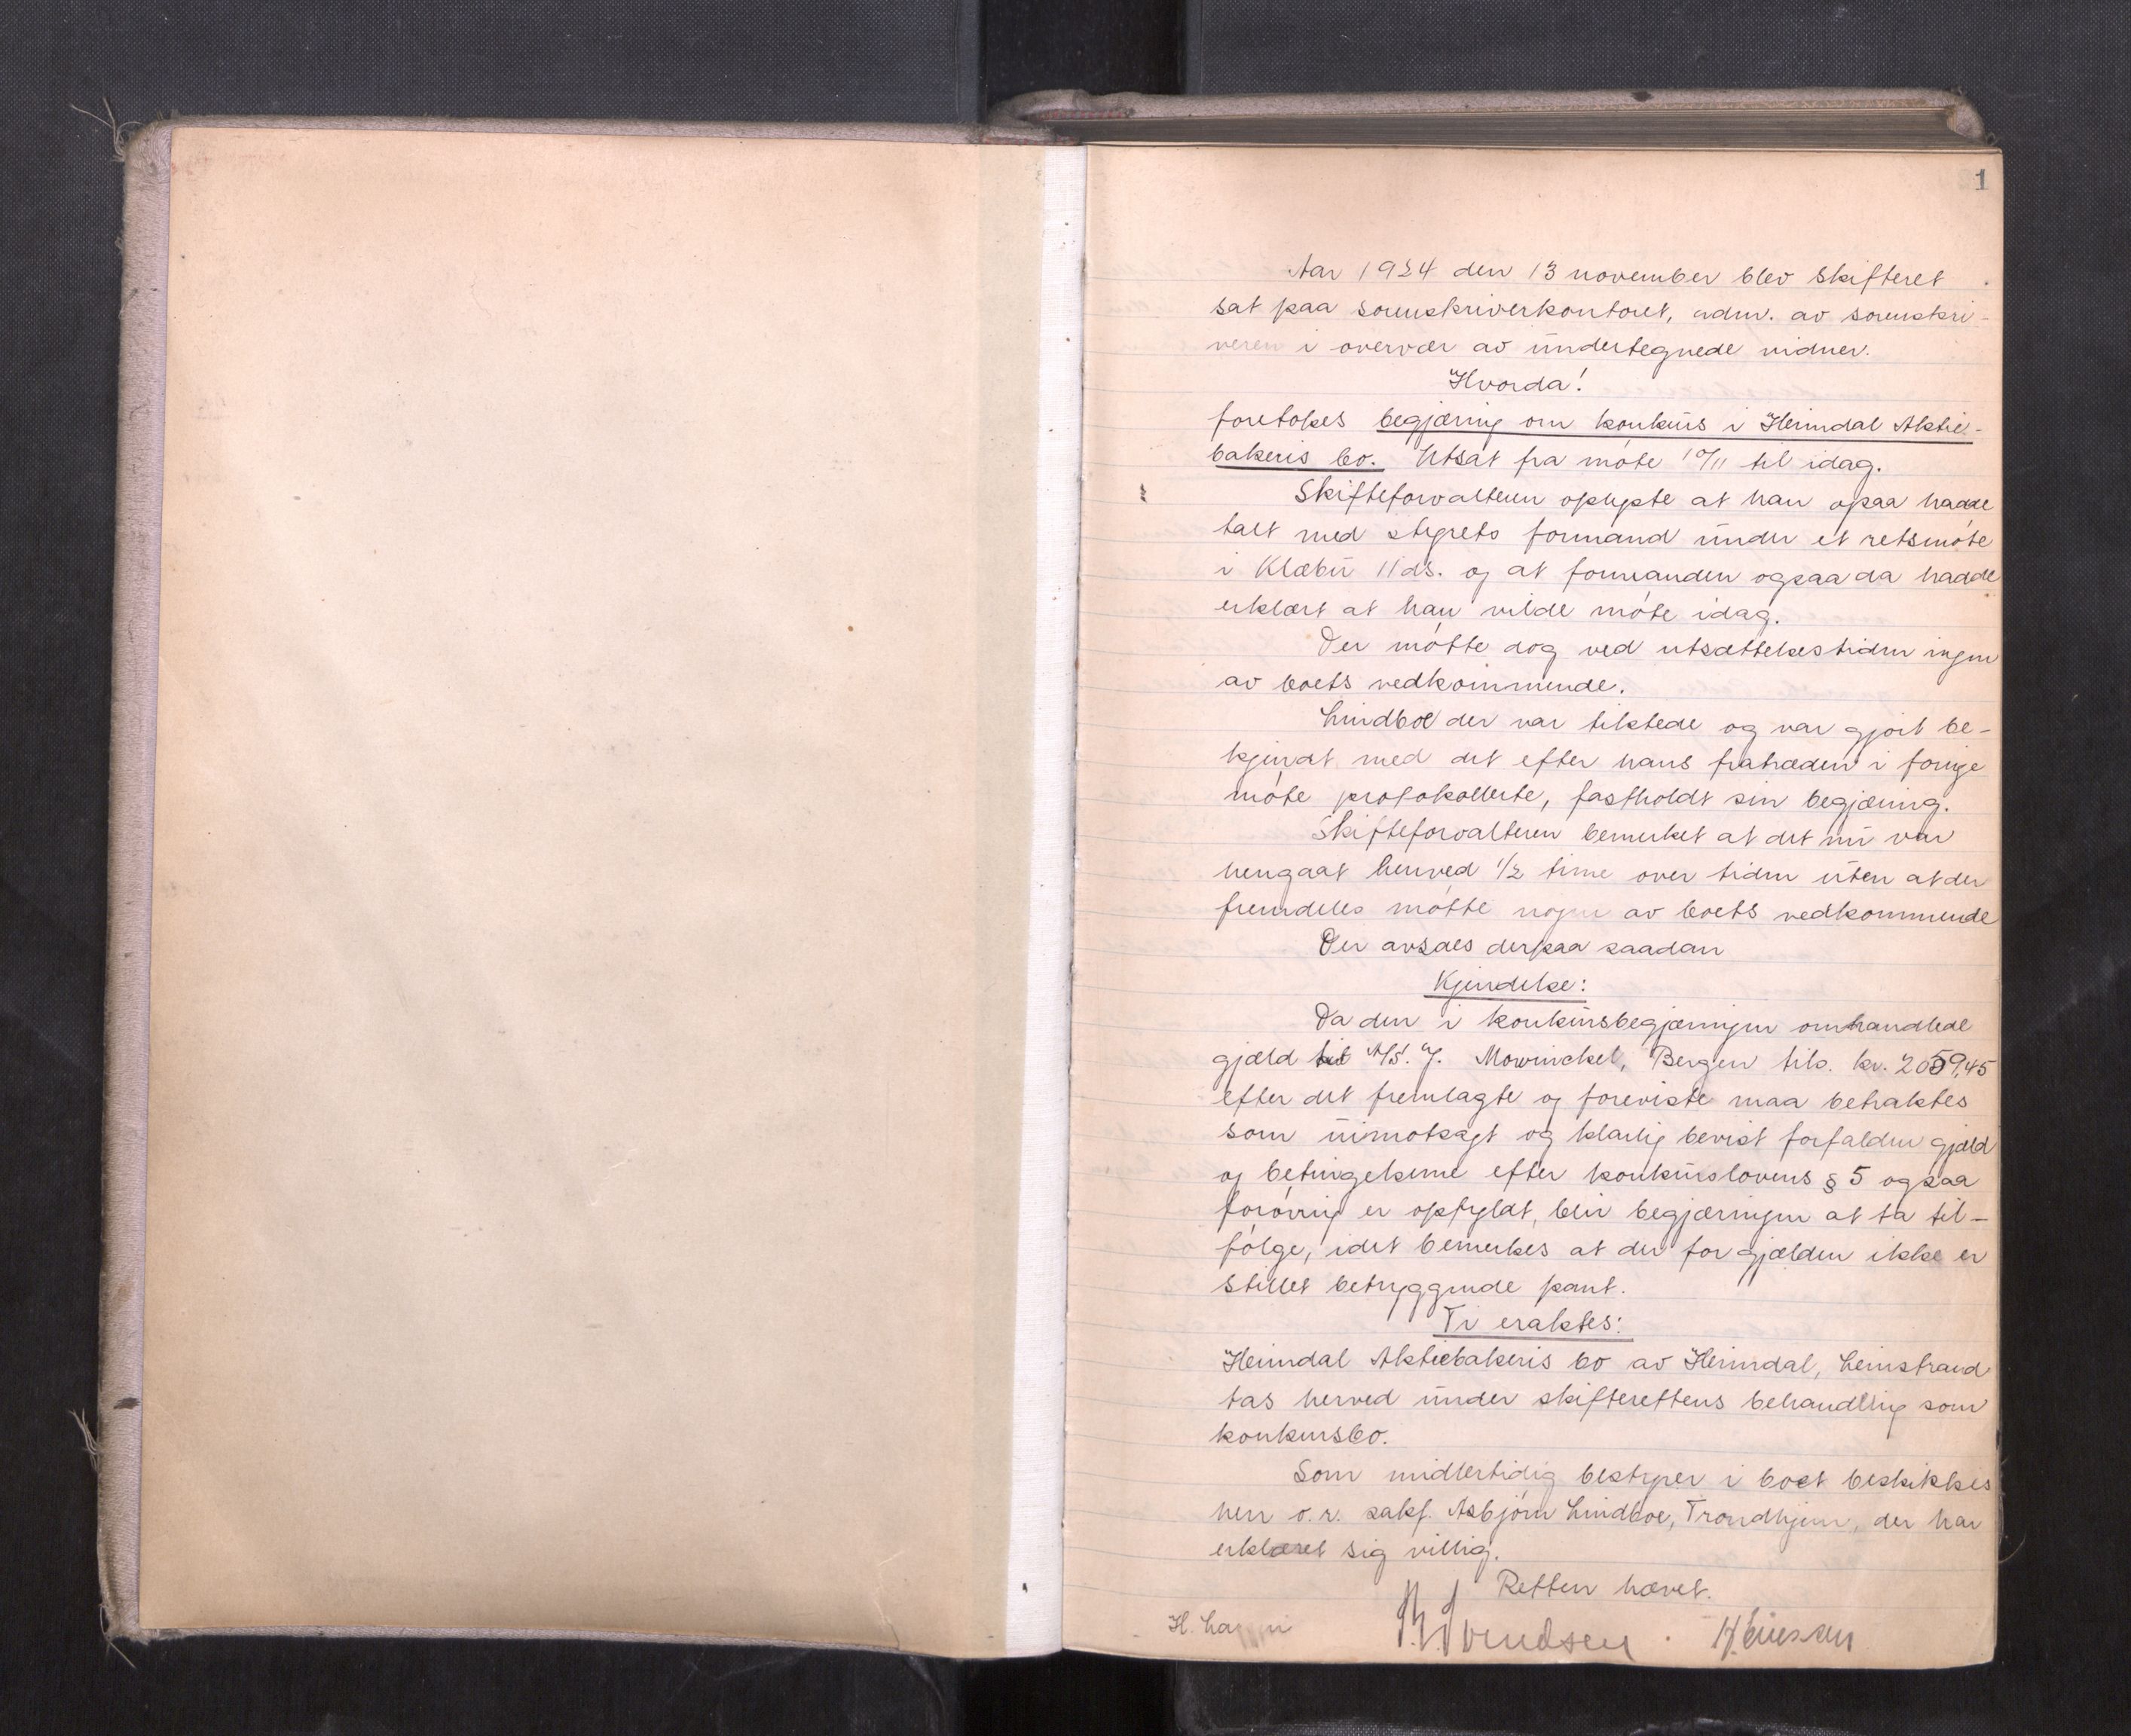 1
Aar 1924 den 13 november blev skifteret
sat paa sorenskriverkontoret, adm. av sorenskri-
veren i overvær av undertegnede vidner.
Hvorda!
foretokes begjæring om konkurs i Heimdal Aktie-
bakeris bo. Utsat fra møte 10/11 til idag.
Skifteforvalteren oplyste at han ogsaa hadde
talt med styrets formand under et retsmøte
i Klæbu 11 ds. og at formanden ogsaa da hadde
erklært at han vilde møte idag.
Der møtte dog ved utsættelsestiden ingen
av boets vedkommende.
Lindboe der var tilstede og var gjort be-
kjendt med det efter hans fratræden i forrige
møte protokollerte, fastholdt sin begjæring.
Skifteforvalteren bemerket at det nu var
hengaat henved 1/2 time over tiden uten at der
fremdeles møtte nogen av boets vedkommende
Der avsaes derpaa saadan
Kjendelse:
Da den i konkursbegjæringen omhandlede
gjæld til A/S. J. Mowinckel, Bergen tils. kr. 2059,45
efter det fremlagte og foreviste maa betraktes
som uimotsagt og klarlig bevist forfalden gjæld
og betingelserne efter konkurslovens § 5 ogsaa
forøvrig er opfyldt, blir begjæringen at ta til-
følge, idet bemerkes at der for gjælden ikke er
stillet betryggende pant.
Ti eraktes:
Heimdal Aktiebakeris bo av Heimdal, Leinstrand
tas herved under skifterettens behandling som
konkursbo.
Som midlertidig bestyrer i boet beskikkes
herr o.r. sakf. Asbjørn Lindboe, Trondhjem, der har
erklæret sig villig.
Retten hævet.
H.